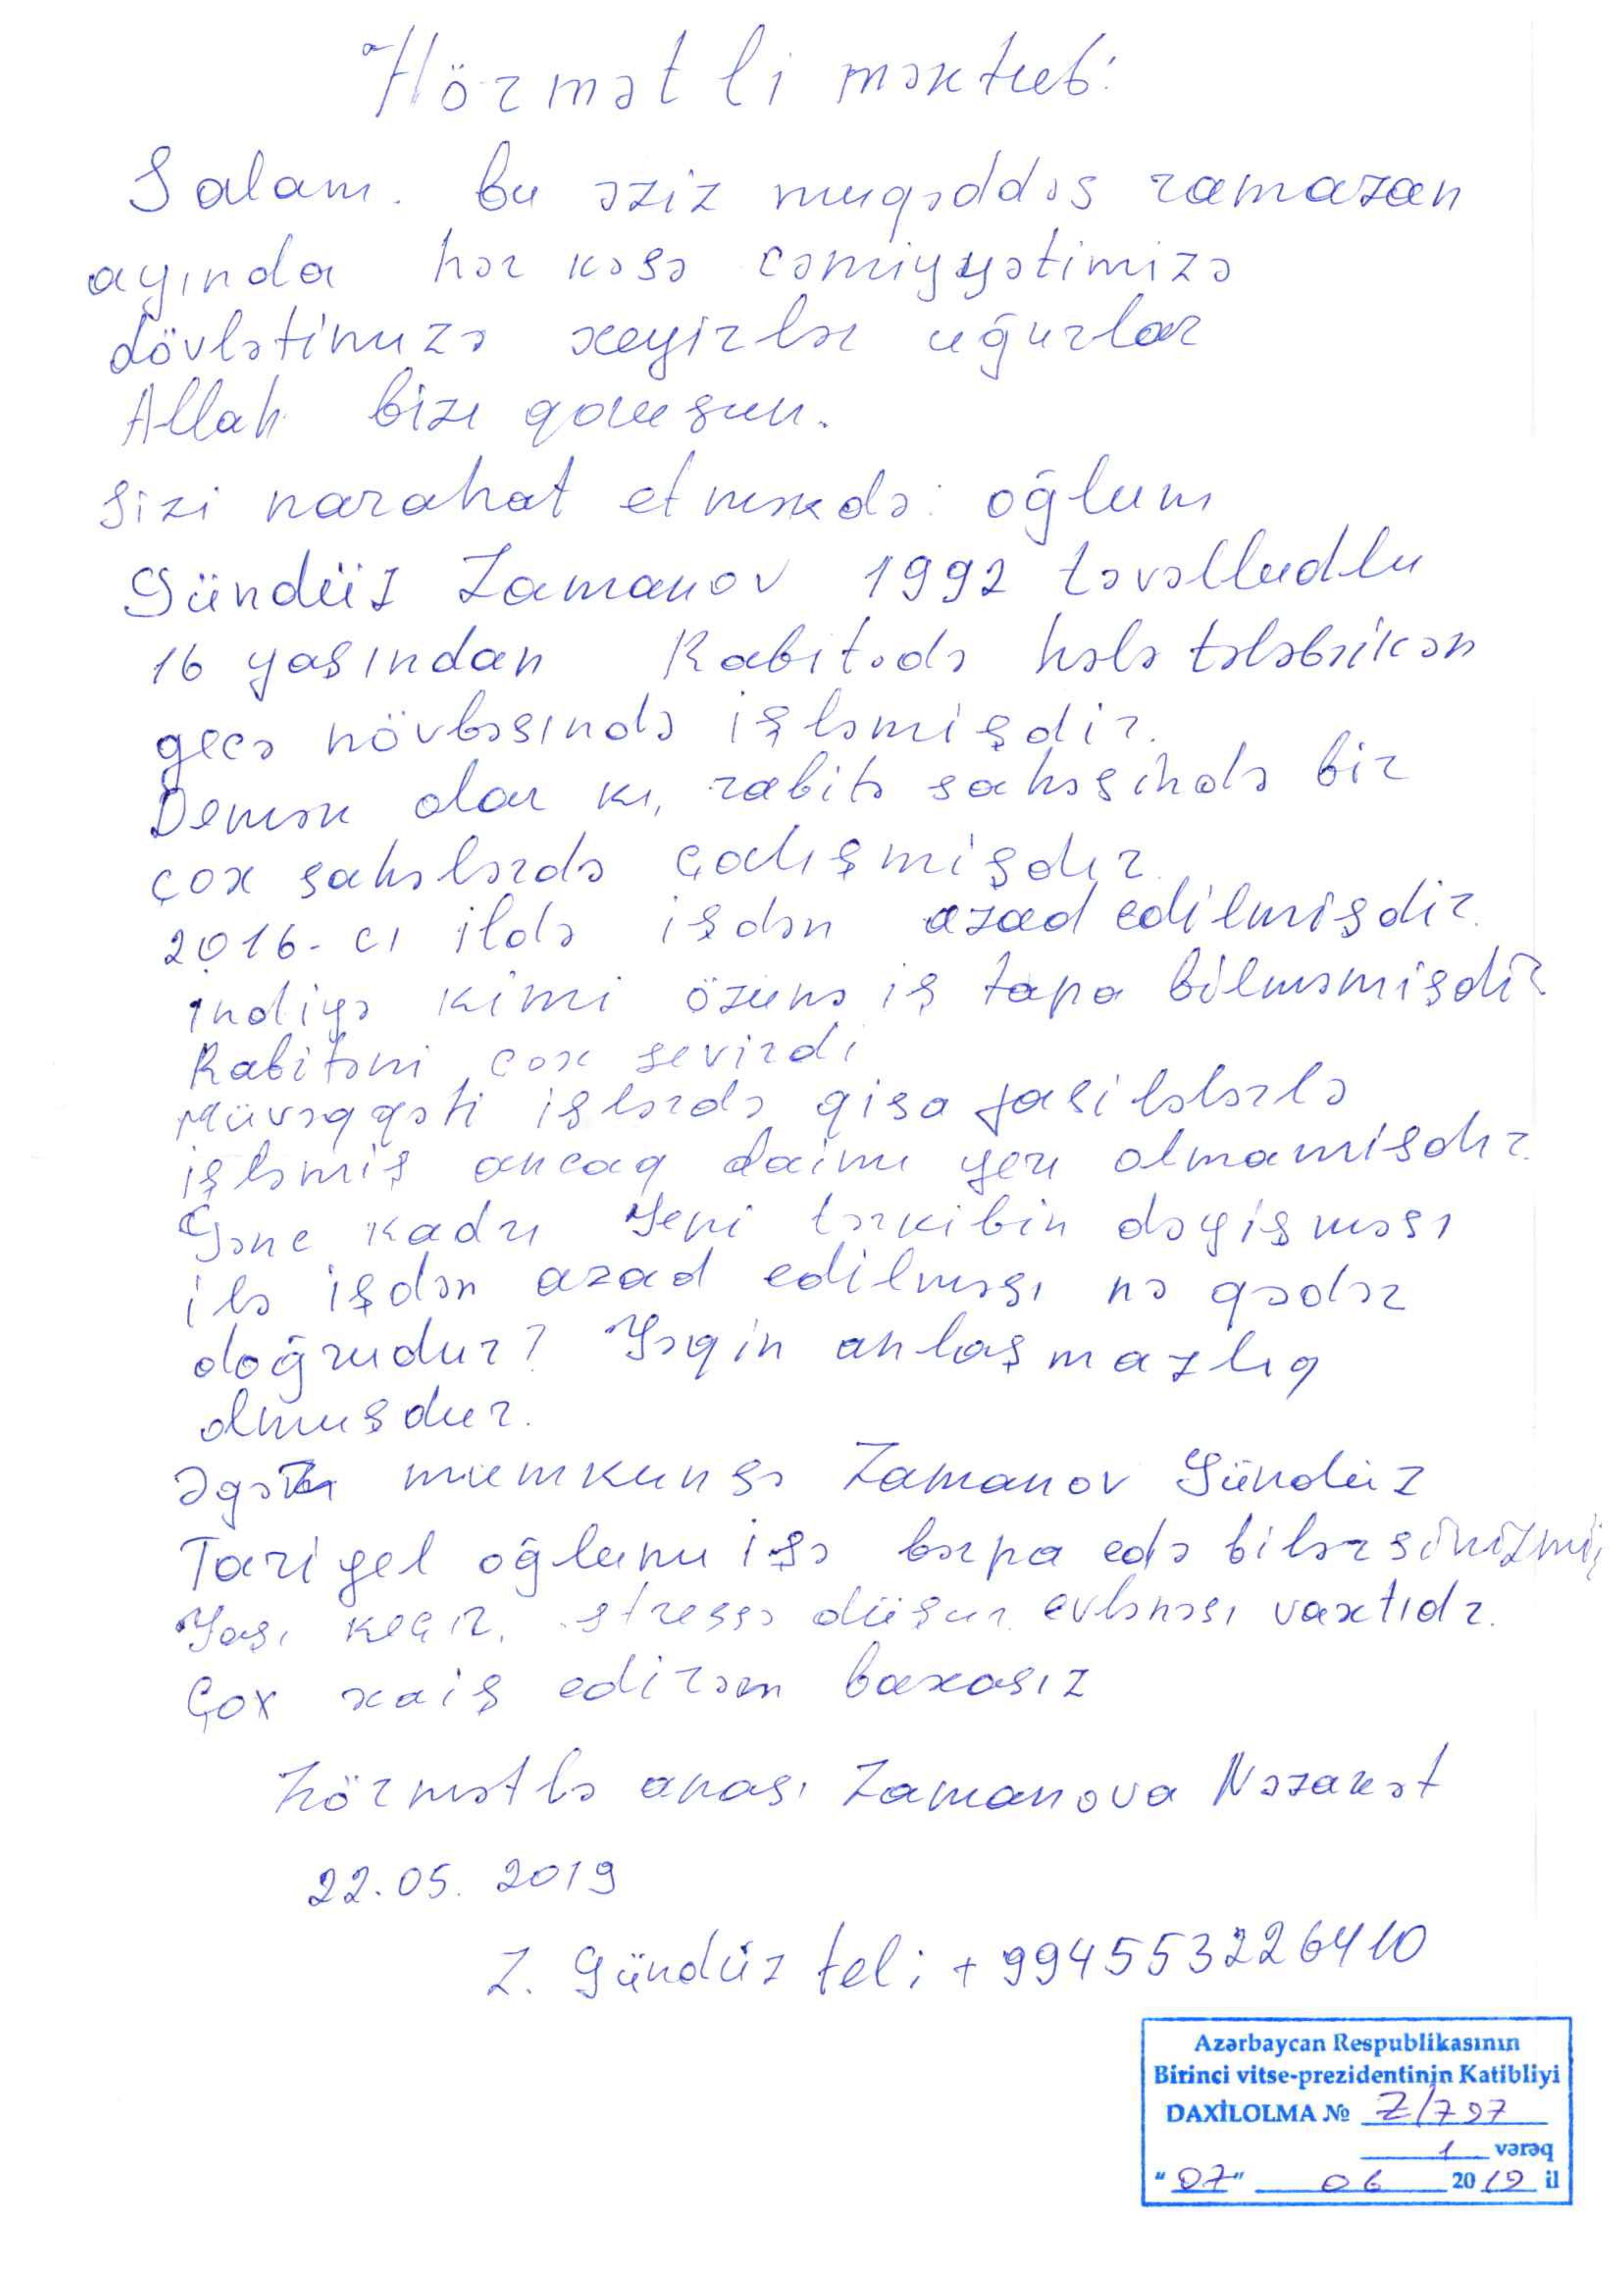 Hörmətli məktub:
Salam. Bu əziz muqəddəs ramazan
ayında hər kəsə cəmiyyətimizə
dövlətimizə xeyirlər uğurlar
Allah bizi qorusun.
Sizi narahat etməkdə: oğlum
Gündüz Zamanov 1992 təvəlludlu
16 yasından Rabitədə hələ tələbəikən
gecə növbəsında işləmişdir.
Demək olar kı, rabitə sahəsində bir
çox sahələrdə çalışmişdır
2016-cı ildə işdən azad edilmişdir.
indiyə kimi özünə iş tapa bilməmişdir
Rabitəni çox sevirdi
Müvəqqəti işlərdə qisa fasilələrlə
işləmiş ancaq daimi yeri olmamisdır.
Gənc kadrı Yeni tərkibin dəyişməsı
ilə işdən azad edilməsı nə qədər
doğrudur? Yəqin anlaşmazlıq
olmuşdur.
Əgər mumkunsə Zamanov Gündüz
Tariyel oğlunu işə bərpa edə bilərsinizmi;
Yaşı keçir, stressə düşür evlənəsı vaxtıdr.
Çox xaiş edirəm baxasız
Hörmətlə anası Zamanova Nəzakət
22.05.2019
Z. Gündüz tel; +994553226410
Azərbaycan Respublikasının
Birinci vitse-prezidentinin Katibliyi
DAXİLOLMA № Z/797
1 vərəq
"07" 06 2019 il